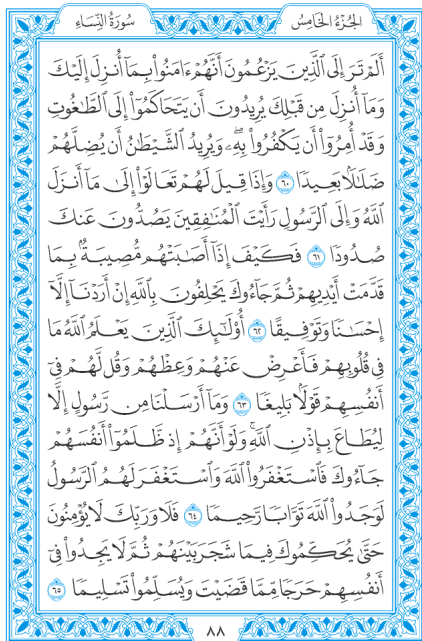 الجُزْءُ الخَامِسُ
سُورَةُ النِّسَاءِ
أَلَمْ تَرَ إِلَى ٱلَّذِينَ يَزْعُمُونَ أَنَّهُمْ ءَامَنُوا۟ بِمَآ أُنزِلَ إِلَيْكَ
وَمَآ أُنزِلَ مِن قَبْلِكَ يُرِيدُونَ أَن يَتَحَاكَمُوٓا۟ إِلَى ٱلطَّـٰغُوتِ
وَقَدْ أُمِرُوٓا۟ أَن يَكْفُرُوا۟ بِهِۦ وَيُرِيدُ ٱلشَّيْطَـٰنُ أَن يُضِلَّهُمْ
ضَلَـٰلًۢا بَعِيدًا ٦٠ وَإِذَا قِيلَ لَهُمْ تَعَالَوْا۟ إِلَىٰ مَآ أَنزَلَ
ٱللَّهُ وَإِلَى ٱلرَّسُولِ رَأَيْتَ ٱلْمُنَـٰفِقِينَ يَصُدُّونَ عَنكَ
صُدُودًا ٦١ فَكَيْفَ إِذَآ أَصَـٰبَتْهُم مُّصِيبَةٌۢ بِمَا
قَدَّمَتْ أَيْدِيهِمْ ثُمَّ جَآءُوكَ يَحْلِفُونَ بِٱللَّهِ إِنْ أَرَدْنَآ إِلَّآ
إِحْسَـٰنًا وَتَوْفِيقًا ٦٢ أُو۟لَـٰٓئِكَ ٱلَّذِينَ يَعْلَمُ ٱللَّهُ مَا
فِى قُلُوبِهِمْ فَأَعْرِضْ عَنْهُمْ وَعِظْهُمْ وَقُل لَّهُمْ فِىٓ
أَنفُسِهِمْ قَوْلًۢا بَلِيغًا ٦٣ وَمَآ أَرْسَلْنَا مِن رَّسُولٍ إِلَّا
لِيُطَاعَ بِإِذْنِ ٱللَّهِ ۚ وَلَوْ أَنَّهُمْ إِذ ظَّلَمُوٓا۟ أَنفُسَهُمْ
جَآءُوكَ فَٱسْتَغْفَرُوا۟ ٱللَّهَ وَٱسْتَغْفَرَ لَهُمُ ٱلرَّسُولُ
لَوَجَدُوا۟ ٱللَّهَ تَوَّابًا رَّحِيمًا ٦٤ فَلَا وَرَبِّكَ لَا يُؤْمِنُونَ
حَتَّىٰ يُحَكِّمُوكَ فِيمَا شَجَرَ بَيْنَهُمْ ثُمَّ لَا يَجِدُوا۟ فِىٓ
أَنفُسِهِمْ حَرَجًا مِّمَّا قَضَيْتَ وَيُسَلِّمُوا۟ تَسْلِيمًا ٦٥
٨٨